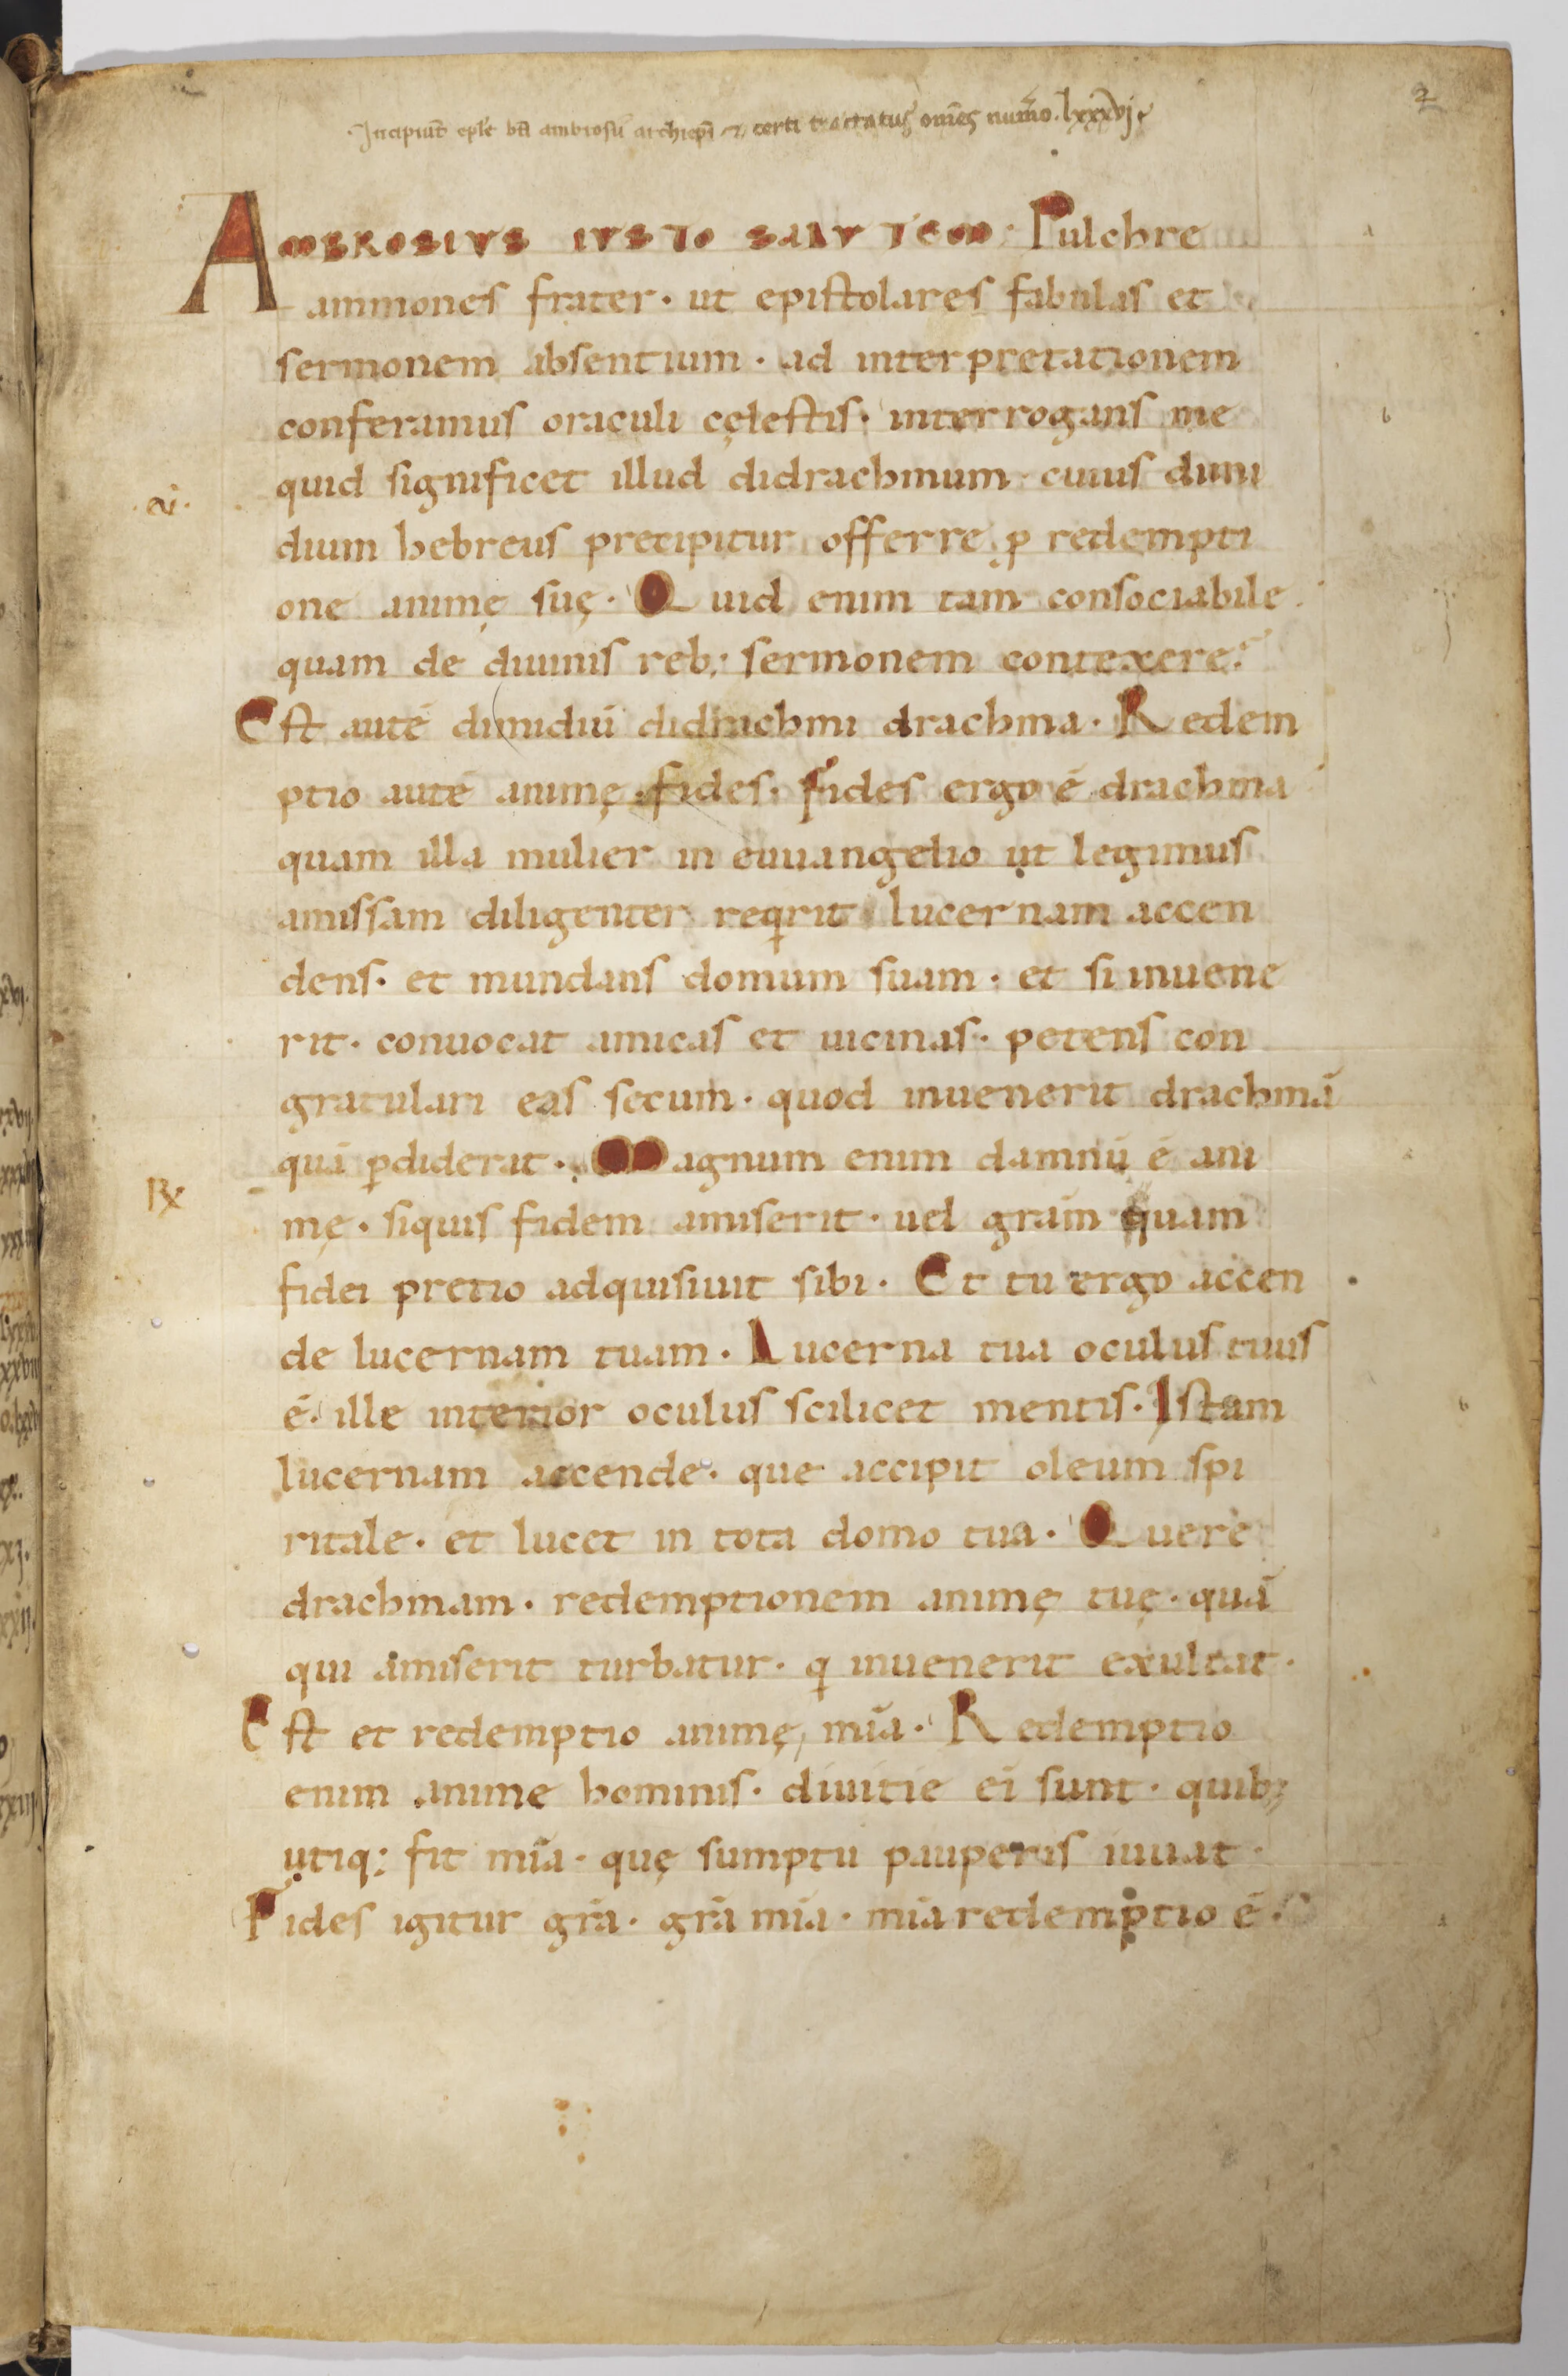 Incipiũt ep̃le bt̃i ambrosij archiep̃i & certi tractatus om̃es num̃o. lxxxvj.
2
AMBROSIVS IVSTO SALVTEM· Pulchre
ammones frater· ut epistolares fabulas et
sermonem absentium· ad interpretationem
conferamus oraculi cęlestis· interrogans me
quid significet illud didrachmum cuius dimi
dium hebreus precipitur offerre ꝓ redempti
one animę suę· Quid enim tam consociabile
quam de diuinis reb; sermonem contexere?
Est autē dimidiū didrachmi drachma· Redem
ptio autē animę fides· fides ergo ē drachma
quam illa mulier in euuangelio ut legimus
amissam diligenter reqrit lucernam accen
dens· et mundans domum suam· et si inuene
rit· conuocat amicas et uicinas· petens con
gratulari eas secum· quod inuenerit drachmā
quā ꝑdiderat· Magnum enim damnū ē ani
mę· siquis fidem amiserit· uel grām quam
fidei pretio adquisiuit sibi· Et tu ergo accen
de lucernam tuam· Lucerna tua oculus tuus
ē· ille interior oculus scilicet mentis· Istam
lucernam accende· que accipit oleum spi
ritale· et lucet in tota domo tua· Quere
drachmam· redemptionem animę tuę· quā
qui amiserit turbatur· q inuenerit exultat·
Est et redemptio animę mīa· Redemptio
enim anime hominis· diuitie ei sunt· quibꝫ
utiq; fit mīa· quę sumptu pauperis iuuat·
Fides igitur grā· grā mīa· mīa redemptio ē·